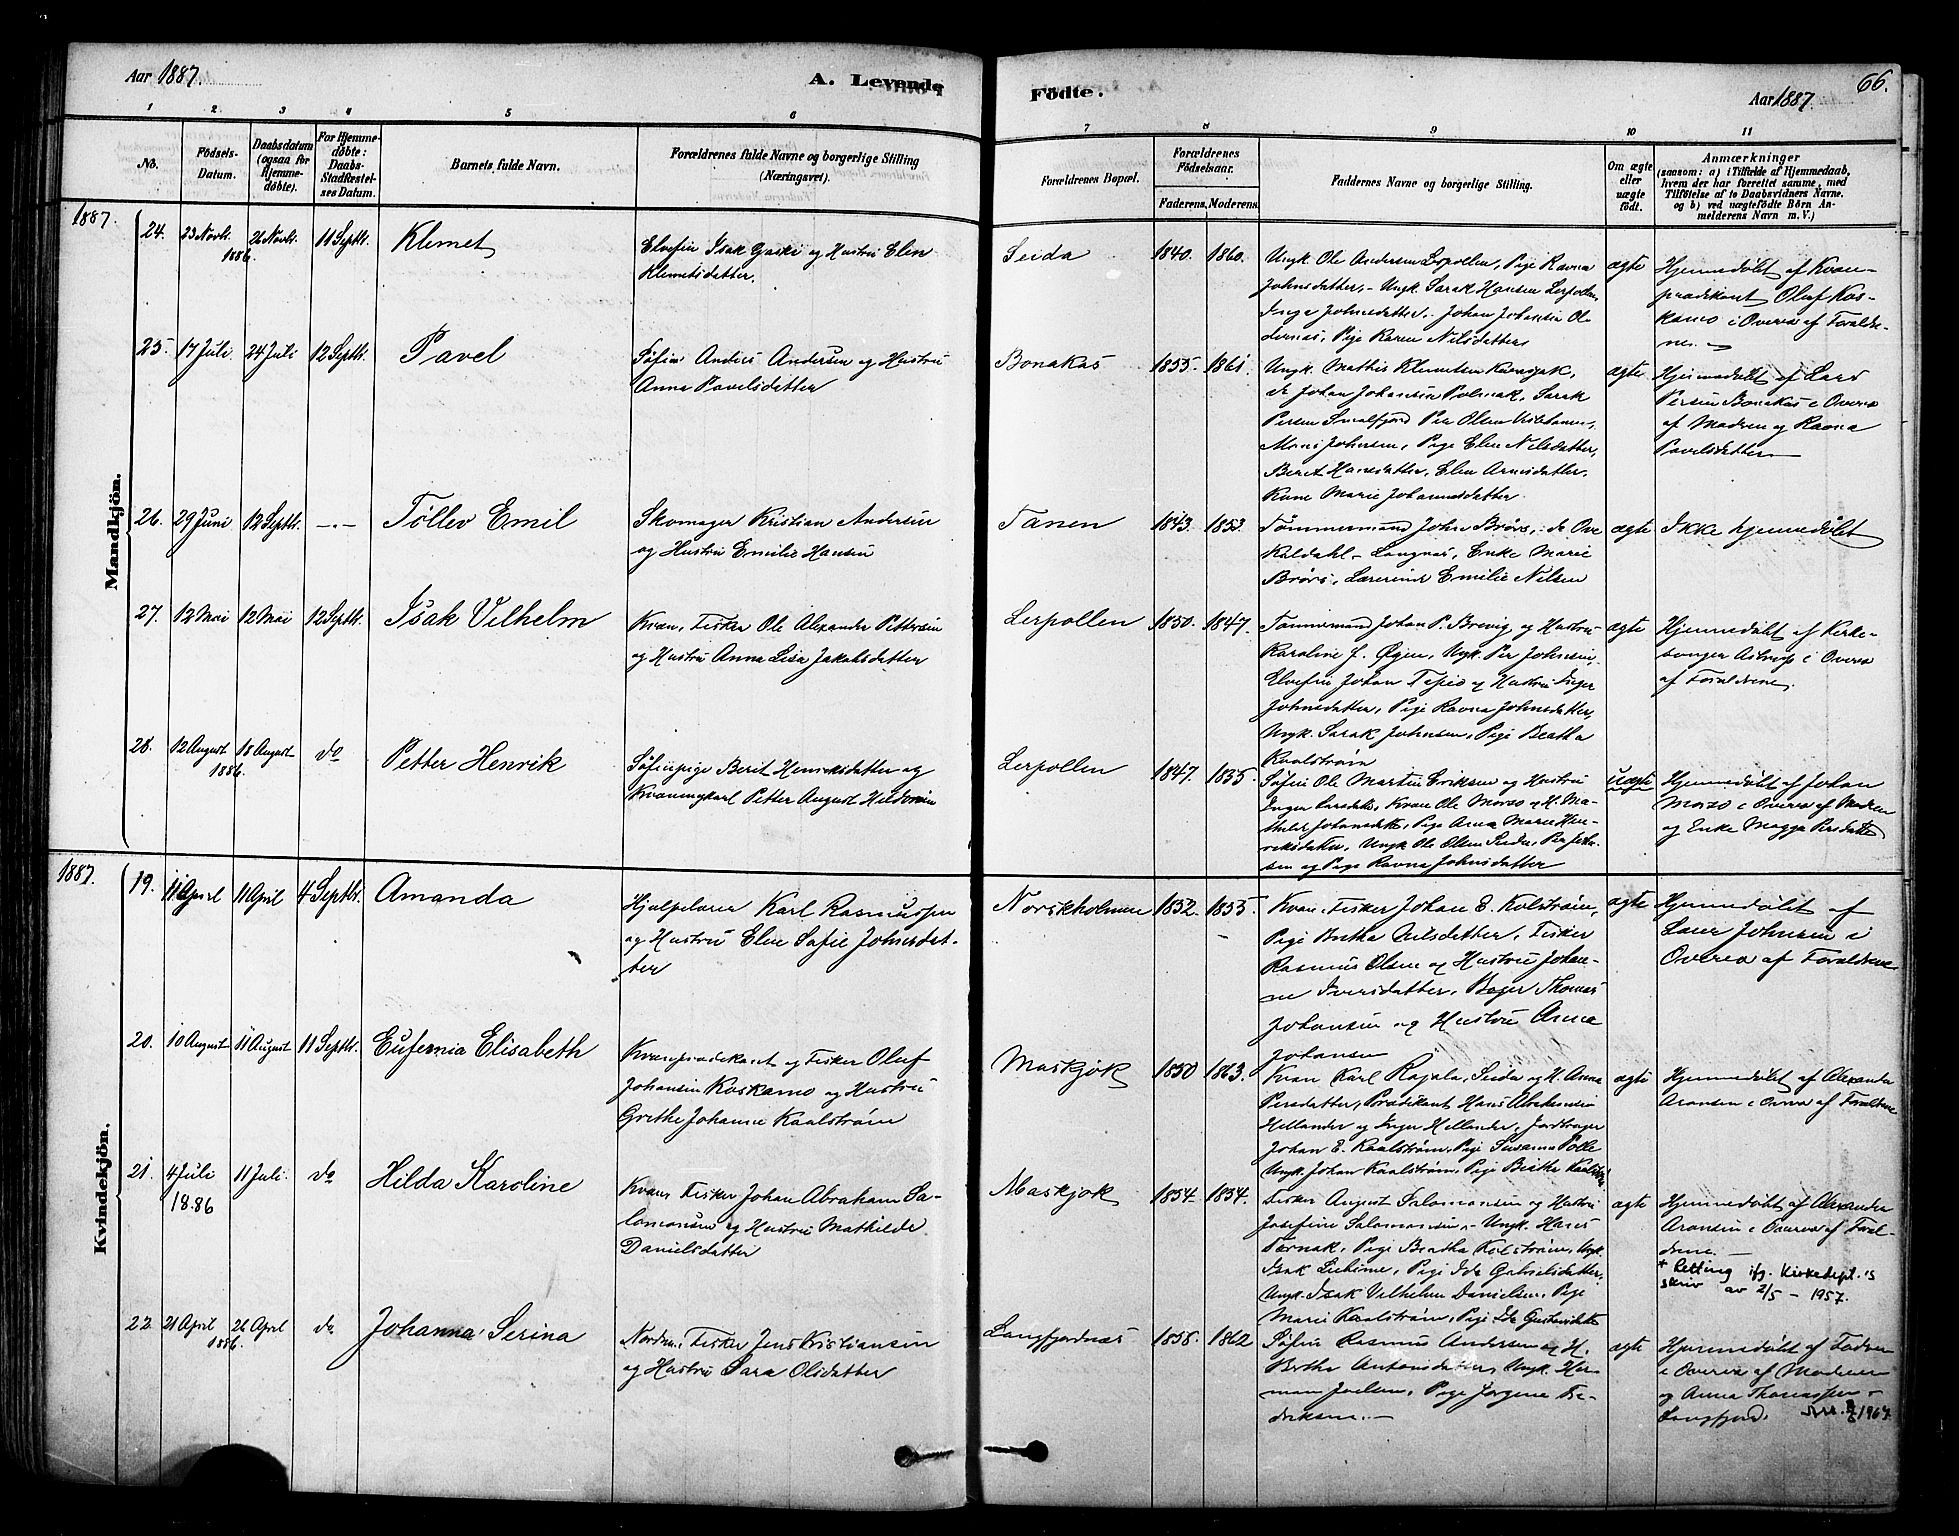 Aar 1887.
A. Levende
Födte.
66.
Aar 1887.
1 2 3 4 5 6
7 8 9 10 11
No.
Födsels-
Datum.
Daabsdatum
(ogsaa for
Hjemme-
døbte).
For Hjemme-
døbte:
Daabs-
Stadfæstel-
ses Datum.
Barnets fulde Navn.
Forældrenes fulde Navne og borgerlige Stilling
(Næringsvei).
Forældrenes Bopæl.
Forældrenes
Födselsaar.
Faderens. Moderens.
Faddernes Navne og borgerlige Stilling.
Om ægte
eller
uægte
født.
Anmærkninger
(saasom: a) i Tilfælde af Hjemmedaab,
hvem der har forrettet samme, med
Tilföielse af to Daabsvidners Navne.
og b) ved uægtefödte Börn An-
melderens Navn m. V.)
Mandkjön.
1887.
24. 23 Novbr. 1886. 26 Novbr. 11 Septbr. Klemet
Elvefin Isak Gaski og Hustru Elen
Klemetsdatter.
Seida 1840. 1860.
Ungk. Ole Andersen Lerpollen, Pige Ravna
Johnsdatter, Ungk. Sarak Hansen Lerpollen,
Inga Johnsdatter, Johan Johansen
Pige Karen Nilsdatter
ægte
Hjemmedøbt af Kvæn-
prædikant Oluf Kos-
kamo i Overv. af Foreldre-
ne.
25. 17 Juli 24 Juli 12 Septbr. Pavel
Søfin Anders Andersen og Hustru
Anna Pavelsdatter
Bonakas 1855. 1861.
Ungk. Mathis Klemetsen
do Johan Johansen Polmak, Sarak
Persen Smalfjord Per Olsen
Mons Johnsen, Pige Elen Nilsdatter,
Beret Hansdatter, Elen Arnesdatter,
Kone Marie Johannesdatter.
ægte
Hjemmedøbt af Lars
Persen Bonakas i Overv.
af Modren og Ravna
Pavelsdatter
26. 29 Juni 12 Septbr. —.— Töllev Emil
Skomager Kristian Andersen
og Hustru Emilie Hansen
Tanen 1843. 1853.
Tømmermand John Brørs, do Ove
Kaldahl - Langnæs, Enke Marie
Brørs, Lærerinde Emilie Nilsen
ægte Ikke hjemmedøbt
27. 12 Mai 12 Mai 12 Septbr. Isak Vilhelm
Kvæn, Fisker Ole Alexander Pettersen
og Hustru Anna Lisa Jakobsdatter
Lerpollen 1850. 1847.
Tømmermand Johan P. Brevig og Hustru
Karoline f. Øien, Ungk. Per Johnsen,
Elvefin Johan Tapio og Hustru Inger
Johnsdatter, Pige Ravna Johnsdatter,
Ungk. Sarak Johnsen, Pige Beatha
Kaalstrøm
ægte
Hjemmedøbt af Kirke-
sanger Astrup i Overv.
af Forældrene.
28. 12 August 1886. 18 August do Petter Henrik
Søfinpige Berit Henriksdatter og
Kvænungkarl Petter August
Lerpollen 1847. 1835.
Søfin Ole Martin Eriksen og Hustru
Inger Kvæn Ole Morzo og H. Ma-
thilde Pige Anna Marie Hen-
riksdatter, Ungk. Ole Olsen Seida, Per Peter-
sen og Pige Ravna Johnsdatter
Uægte
Hjemmedøbt af Johan
Morzo i Overv. af Modren
og Enke Magga Persdatter
Kvindekjön.
1887.
19. 11 April 11 April 4 Septbr. Amanda
Hjælpelærer Karl Rasmussen
og Hustru Elen Sofie Johnsdat-
ter
Norskholmen 1852. 1855.
Kvæn, Fisker Johan E. Kolstrøm,
Pige Bertha Nilsdatter, Fisker
Rasmus Olsen og Hustru Johan-
ne Iversdatter, Thomas
Johansen og Hustru Anna
Johansen
ægte
Hjemmedøbt af
Johnsen i
Overv. af Forældrene
20. 10 August 11 August 11 Septbr. Eufemia Elisabeth
Kvænprædikant og Fisker Oluf
Johansen Koskamo og Hustru
Grethe Johanne Kaalstrøm
Maskjok 1850 1863.
Kvæn Karl Rajala, Seida og H. Anna
Persdatter, Prædikant Hans Abrahamsen
Hellander og Inger Hellander, Jordbruger
Johan E. Kaalstrøm, Pige Susanna Polle
Ungk. Johan Kaalstrøm, Pige Beatha Kaalstrøm
ægte
Hjemmedøbt af Alexander
Aronsen i Overv. af Forældrene
21. 4 Juli 1886 11 Juli. do Hilda Karoline
Kvæn, Fisker Johan Abraham Sa-
lomonsen og Hustru Mathilde
Danielsdatter
Maskjok 1854. 1854.
Fisker August Salomonsen og Hustru
Josefine Salomonsen, Ungk. Hans
Pige Beatha Kolstrøm, Ungk.
Isak Pige Ida Gabrielsdatter,
Ungk. Isak Vilhelm Danielsen, Pige
Marie Kaalstrøm, Pige Ida Gustavsdatter
ægte
Hjemmedøbt af Alexander
Aronsen i Overv. af Foræl-
drene. —
* Retting ifg. Kirkedept.'s
skriv av 2/5 - 1957.
22. 21 April 1886. 26 April do Johanna Serina
Nordm. Fisker Jens Kristiansen
og Hustru Sara Olsdatter
Langfjordnæs 1858. 1862
Søfin Rasmus Andersen og H.
Berthe Antonsdatter, Ungk. Her-
man Joelsen, Pige Jørgine Fre-
driksen. —
ægte
Hjemmedøbt af Fadren
i Overv. af Modren
og Anna Thomassen
Langfjord.